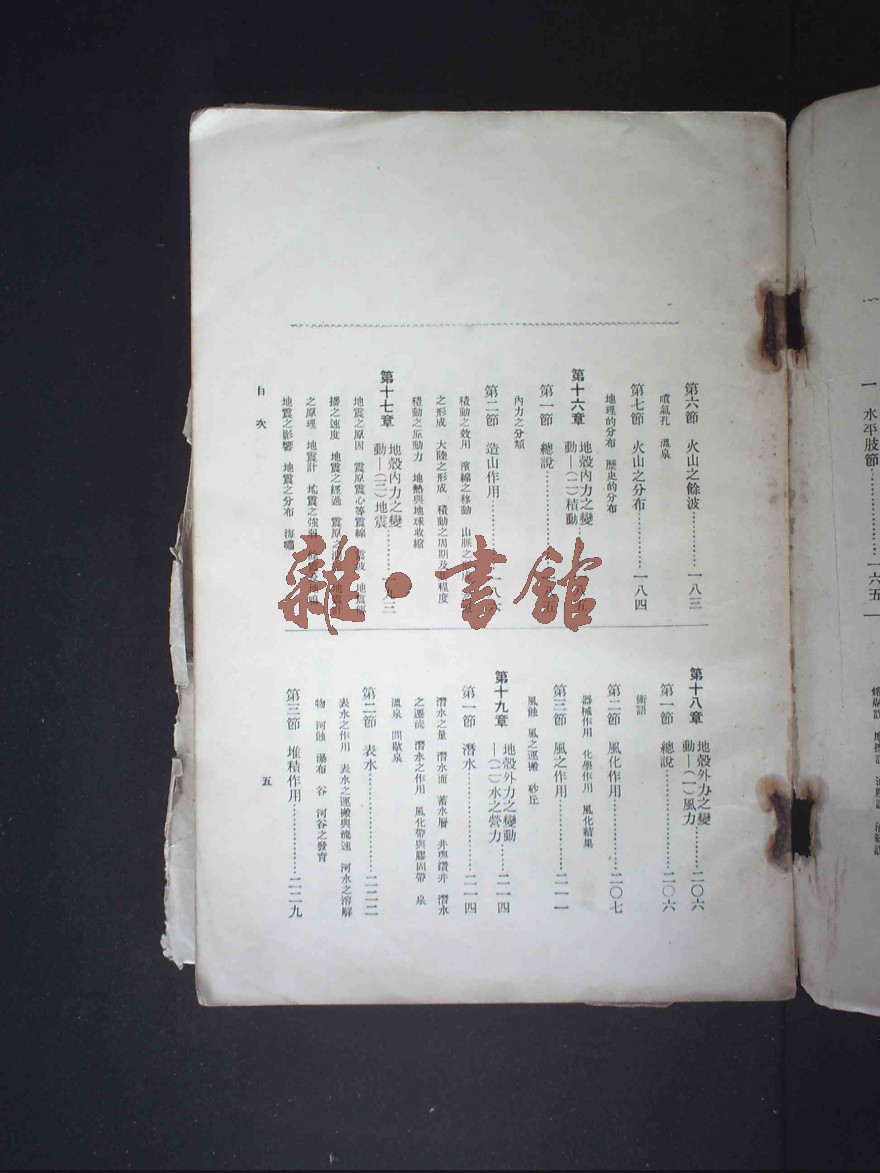 一 水平肢節…………一六五
第六節 火山之餘波…………一八三
噴氣孔 溫泉
第七節 火山之分布…………一八四
地理的分布 歷史的分布
第十六章 地殼內力之變
動—(二)積動
第一節 總說
內力之分類
第二節 造山作用…………一八六
積動之效用 濱線之移動 山脈之
之形成 大陸之形成 積動之周期及程度
積動之原動力 地熱與地球收縮
第十七章 地殼內力之變
動—(三)地震 一九三
地震之原因 震原震心等震線 地震
播之速度 地震之經過 震原之
之原理 地震計 地震之強弱
地震之影響 地震之分布 海嘯
第十八章 地殼外力之變
動—(一)風力…………二〇六
第一節 總說…………二〇六
術語
第二節 風化作用…………二〇七
器械作用 化學作用 風化結果
第三節 風之作用…………二一一
風蝕 風之運搬 砂丘
第十九章 地殼外力之變動
—(二)水之營力 二一四
第一節 潛水…………二一四
潛水之量 潛水面 蓄水層 井與鑽井 潛水
之還流 潛水之作用 風化帶與膠固帶 泉
溫泉 間歇泉
第二節 表水…………二二二
表水之作用 表水之運搬與流速 河水之溶解
物 河蝕 瀑布 谷 河谷之發育
第三節 堆積作用…………二二九
目次
五
雜·書館